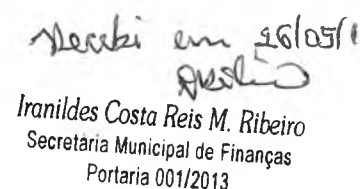 Recebi em 26/05/1
Iranildes Costa Reis M. Ribeiro
Secretária Municipal de Finanças
Portaria 001/2013